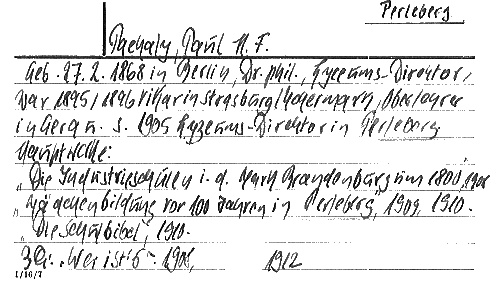 Perleberg
Paul H. F.
Geb. 27.2.1868 in Berlin, Dr. phil., Lyceums-Direktor,
war 1895/1896 Vikar in Strasburg/Uckermark, Oberlehrer
in Gera u. s. 1905 Lyzeums-Direktor in Perleberg.
Hauptwerke:
"Die Industrieschulen i. d. Mark Brandenburg um 1800", 1908
"Mädchenbildung vor 100 Jahren in Perleberg", 1909, 1910.
"Die Schulbibel", 1910.
"Wer ist's". 1908, 1912
1/16/7